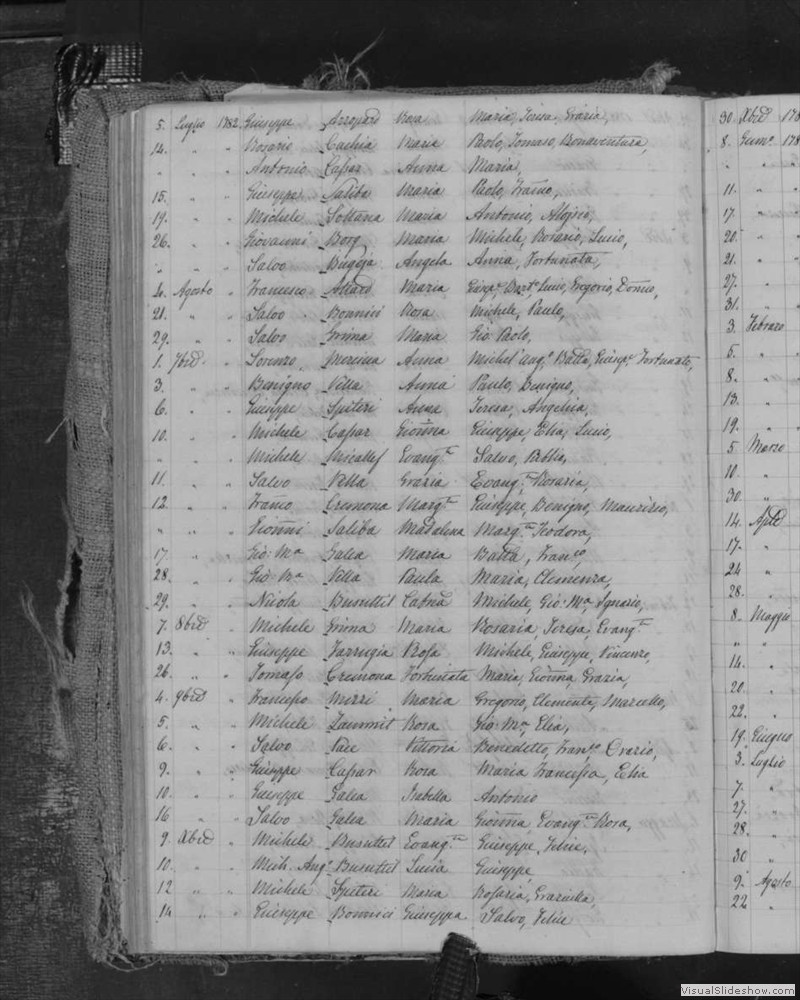 5. Luglio 1782. Giuseppe Azzopard Rosa Maria, Teresa, Grazia,
14. " " Rosario Cachia Maria Paolo, Tomaso, Bonaventura,
" " " Antonio Caſsar Anna Maria,
15. " " Giuseppe Saliba Maria Paolo, Franco,
19. " " Michele Soltana Maria Antonio, Alojsio,
26. " " Giovanni Borg Maria Michele, Rosario, Lucio,
" " " Salvo Bugeja Angela Anna, Fortunata,
4. Agosto " Francesco Attard Maria Luis, Gregorio,
21. " " Salvo Bonnici Rosa Michele, Paulo,
29. " " Salvo Grima Maria Gio Paolo,
1. 7bre " Lorenzo Anna Michel'ang.o Batta, Giusp.e Fortunato,
3. " " Benigno Vella Anna Paulo, Benigno,
6. " " Giuseppe Spiteri Anna Teresa, Angelica,
10. " " Michele Caſsar Gioñna Giuseppe, Elia, Lucio,
" " " Michele Micallef Evang.ta Salvo, Publia,
11. " " Salvo Vella Grazia Evang.ta Rosaria,
12. " " Franco Cremona Marg.ta Giuseppe, Benigno, Maurizio,
" " " Gioñni Saliba Madalena Marg.ta Teodora,
17 " " Gio: M.a Galea Maria Batta, Fran.co,
28. " " Gio: M.a Vella Paula Maria, Clemenza,
29. " " Nicola Busuttil Catna Michele, Gio: M.a Ignazio,
7. 8bre " Michele Grima Maria Rosaria, Teresa, Evang.ta
13. " " Giuseppe Farrugia Rosa Michele, Giuseppe, Vincenzo,
26. " " Tomaſo Cremona Fortunata Maria, Gioñna, Grazia,
4. 9bre " Franceſco Mizzi Maria Gregorio, Clemente, Marcello,
5. " " Michele Zammit Rosa Gio: M.a, Elia,
6. " " Salvo Pace Vittoria Benedetto, Fran.co Orazio,
9. " " Giuseppe Caſsar Rosa Maria Franceſca, Elia
10. " " Giuseppe Galea Isabella Antonio
16 " " Salvo Galea Maria Gioñna, Evang.ta Rosa,
9. Xbre " Michele Busuttil Evang.ta Giuseppe, Felice,
10. " " Mich. Ang.o Busuttil Luisa Giuseppe
12 " " Michele Spiteri Maria Rosaria, Graziulla,
14 " " Giuseppe Bonnici Giuseppa Salvo, Felice
30. Xbre 178
8. Genn.o 178
" " "
11. " "
17. "
20. "
21. "
27. "
31. "
3. Febraro
5. "
8. "
13. "
19. "
5 Marzo
10. "
30. "
14. Aple
17. "
24 "
28. "
8. Maggio
" "
14. "
20. "
22. "
19. Giugno
3. Luglio
7. "
27. "
28. "
30 "
9. Agosto
22 "
VisualSlideshow.com